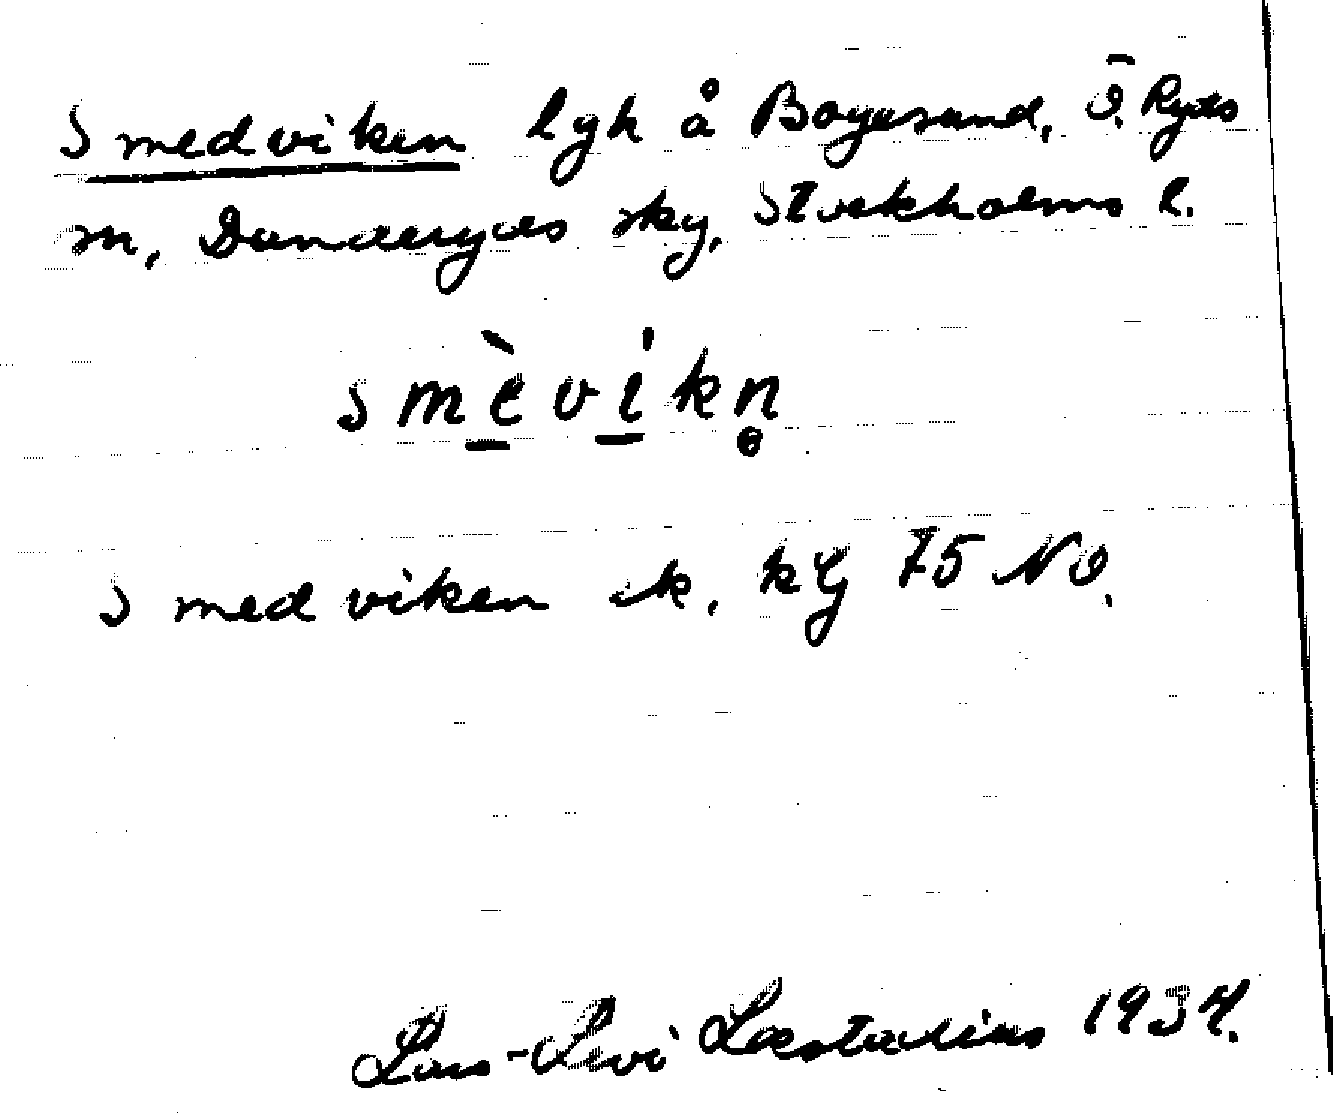 Smedviken lgh å Bogesund, Ö. Ryds
sn, Danderyds skg, Stockholms l.
smèvi̍kn̥
Smedviken ek. kbl 75 NO.
Lars-Levi Læstadius 1934.